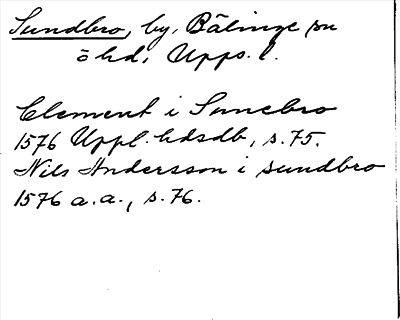 Sundbro, by, Bälinge sn
ö hd, Upps. l.
Clement i Sunebro
1576 Uppl. hdsdb, s. 75.
Nils Andersson i sundbro
1576 a.a., s. 76.